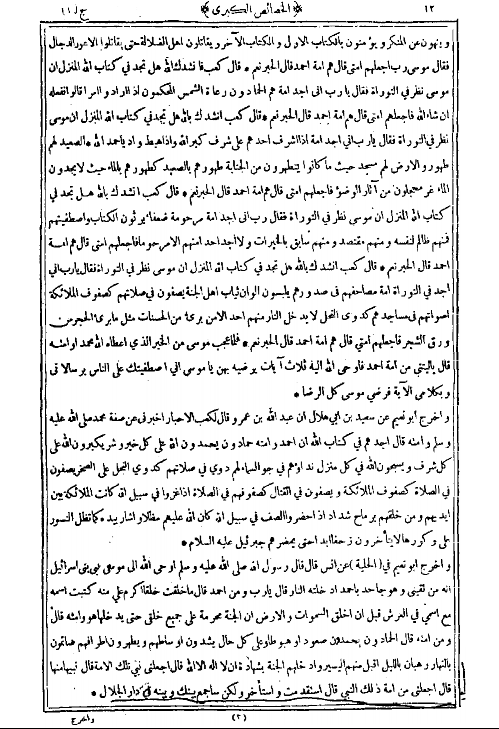 ١٢ ﴿الخصائص الكبرى﴾ ج١١
وينهون عن المنكر ويؤمنون بالكتاب الاول والكتاب الآخر ويقاتلون اهل الضلالة حتى يقاتلوا الاعور الدجال
فقال موسى رب اجعلهم امتى قال هم امة احمد قال الحبر نعم * قال كعب فانشدك الله هل تجد فى كتاب الله المنزل ان
موسى نظر فى التوراة فقال يارب انى اجد امة هم الحادون رعاة الشمس المحكمون اذا ارادوا امرا قالوا نفعله
ان شاء الله فاجعلهم امتى قال هم امة احمد قال الحبر نعم * قال كعب انشدك بالله هل تجد فى كتاب الله المنزل ان موسى
نظر فى التوراة فقال يارب انى اجد امة اذا اشرف احدهم على شرف كبر الله واذا هبط واديا حمد الله * الصعيد لهم
طهور والارض لهم مسجد حيث ما كانوا يتطهرون من الجنابة طهورهم بالصعيد كطهورهم بالماء حيث لايجدون
الماء غر محجلون من آثار الوضوء فاجعلهم امتى قال هم امة احمد قال الحبر نعم * قال كعب انشدك بالله هل تجد فى
كتاب الله المنزل ان موسى نظر فى التوراة فقال رب انى اجد امة مرحومة ضعفاء يرثون الكتاب واصطفيتهم
فمنهم ظالم لنفسه ومنهم مقتصد ومنهم سابق بالخيرات ولا اجد احدا منهم الا مرحوما فاجعلهم امتى قال هم امة
احمد قال الحبر نعم * قال كعب انشدك بالله هل تجد فى كتاب الله المنزل ان موسى نظر فى التوراة فقال يارب انى
اجد فى التوراة امة مصاحفهم فى صدورهم يلبسون الوان ثياب اهل الجنة يصفون فى صلاتهم كصفوف الملائكة
اصواتهم فى مساجدهم كدوى النحل لايدخل النار منهم احد الا من برئ من الحسنات مثل مابرئ الحجر من
ورق الشجر فاجعلهم امتى قال هم امة احمد قال الحبر نعم * فلما عجب موسى من الخير الذي اعطاه الله محمدا وامته
قال ياليتنى من امة احمد فاوحى الله اليه ثلاث آيات يرضيه بهن ياموسى انى اصطفيتك على الناس برسالاتى
وبكلامى الآية فرضى موسى كل الرضا *
واخرج ابو نعيم عن سعيد بن ابى هلال ان عبد الله بن عمرو قال لكعب الاحبار اخبرنى عن صفة محمد صلى الله عليه
وسلم وامته قال اجدهم فى كتاب الله ان احمد وامته حمادون يحمدون الله على كل خير وشر يكبرون الله على
كل شرف ويسبحون الله فى كل منزل نداؤهم فى جو السماء لهم دوى فى صلاتهم كدوى النحل على الصخر يصفون
فى الصلاة كصفوف الملائكة ويصفون فى القتال كصفوفهم فى الصلاة اذا غزوا فى سبيل الله كانت الملائكة بين
ايديهم ومن خلفهم برماح شداد اذا حضروا الصف فى سبيل الله كان الله عليهم مظلا واشار بيده * كما تظل النسور
على وكورها لايتأخرون زحفا ابدا حتى يحضرهم جبرئيل عليه السلام *
واخرج ابو نعيم فى (الحلية) عن انس قال قال رسول الله صلى الله عليه وسلم اوحى الله الى موسى نبى بنى اسرائيل
انه من لقينى وهو جاحد باحمد ادخلته النار قال يارب ومن احمد قال ماخلقت خلقا اكرم علي منه كتبت اسمه
مع اسمى فى العرش قبل ان اخلق السموات والارض ان الجنة محرمة على جميع خلقى حتى يدخلها هو وامته قال
ومن امته قال الحمادون يحمدون صعودا وهبوطا وعلى كل حال يشدون اوساطهم ويطهرون اطرافهم صائمون
بالنهار رهبان بالليل اقبل منهم اليسير وادخلهم الجنة بشهادة ان لا اله الا الله قال اجعلنى نبى تلك الامة قال نبيها منها
قال اجعلنى من امة ذلك النبى قال استقدمت واستأخر ولكن ساجمع بينك وبينه فى دار الجلال *
(٣) واخرج